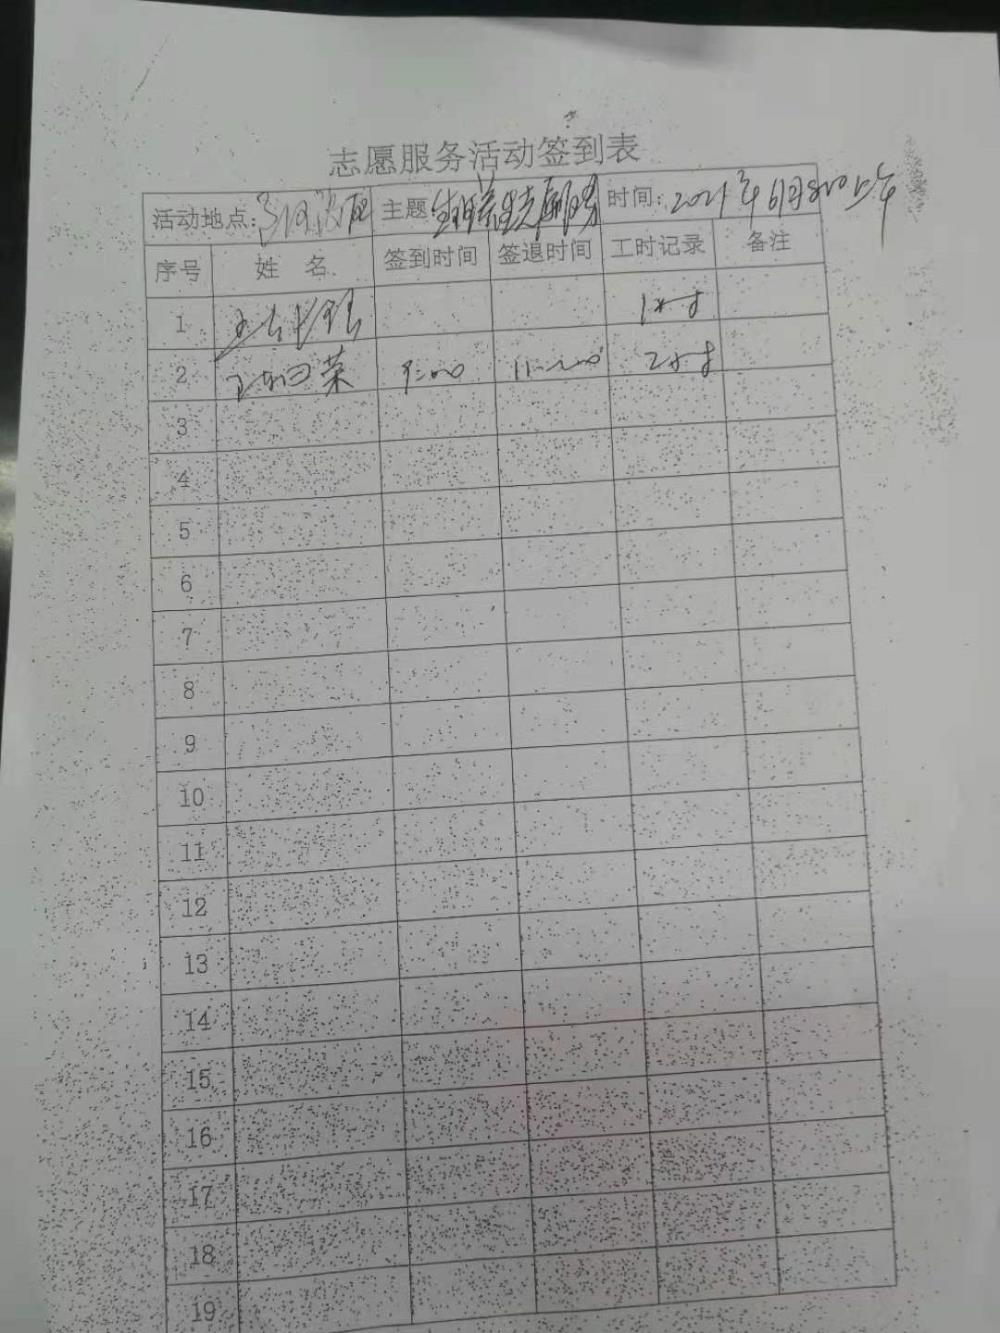 志愿服务活动签到表
活动地点: 主题 服务 时间: 2021年6月8日上午
序号 姓 名 签到时间 签退时间 工时记录 备注
1 1小时
2 荣 9:00 11:00 2小时
3
4
5
6
7
8
9
10
11
12
13
14
15
16
17
18
19